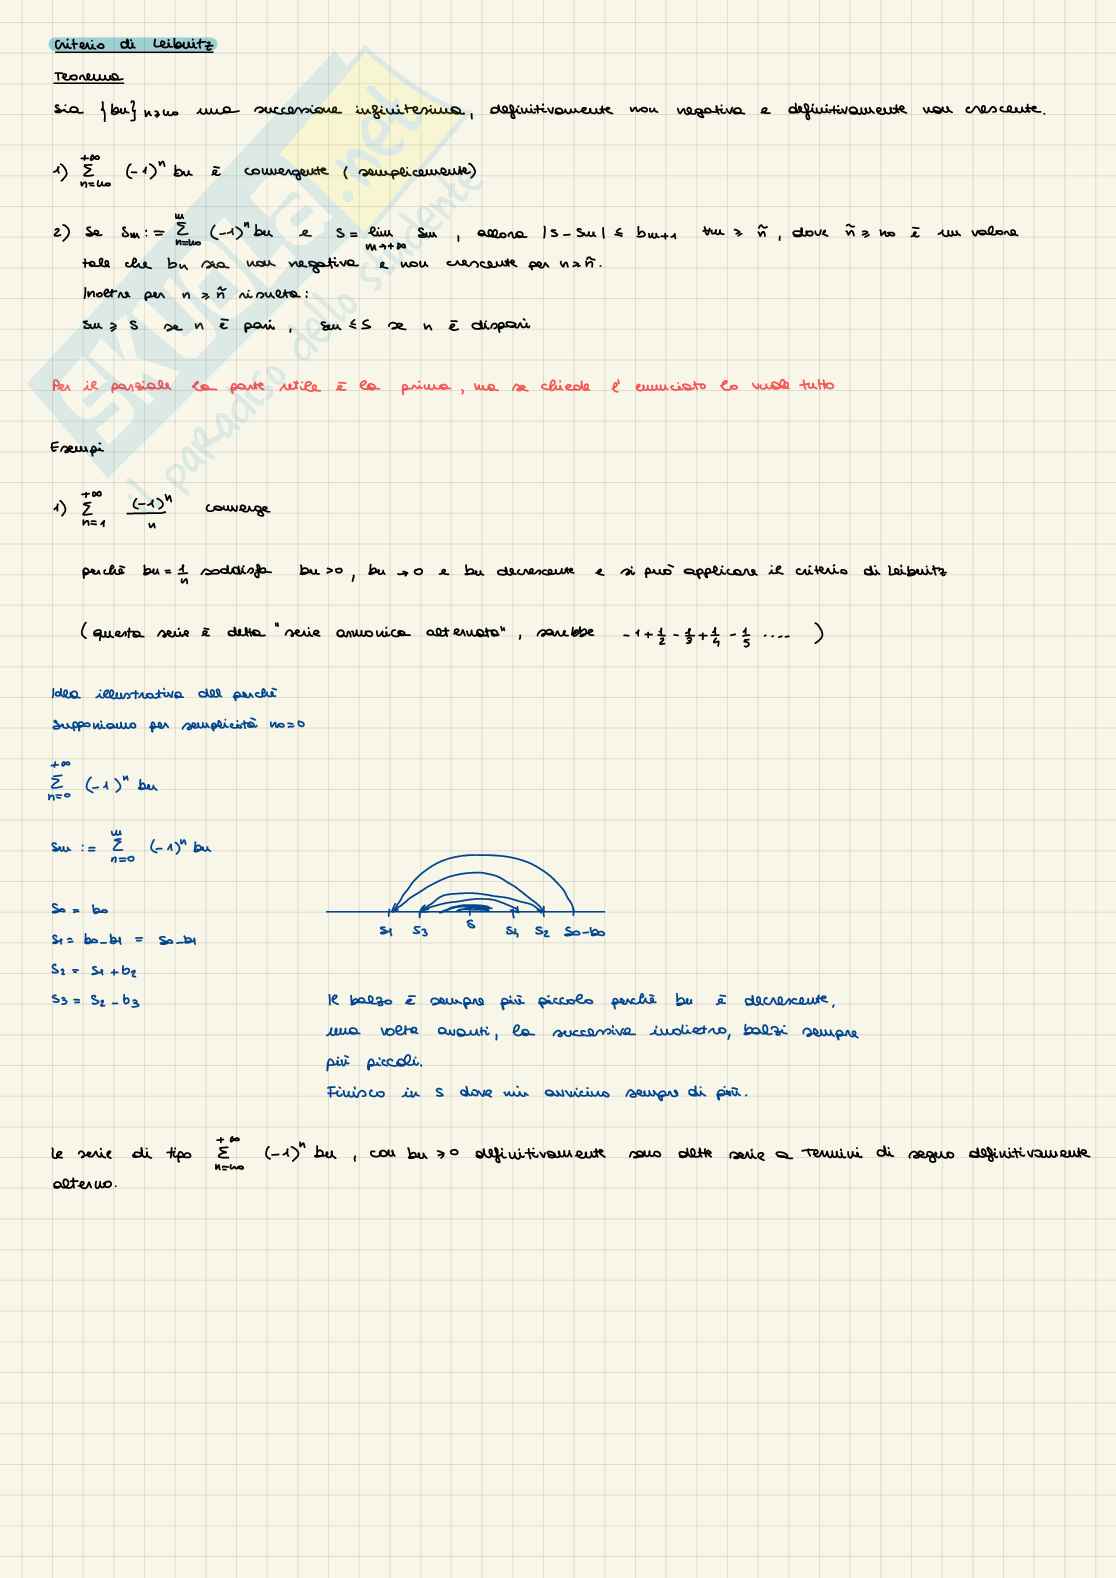 Criterio di Leibnitz
Teorema
Sia {bn} n≥n0 una successione infinitesima, definitivamente non negativa e definitivamente non crescente.
1) +∞ Σ n=n0 (-1)^n bn è convergente (semplicemente)
2) Se Sm := m Σ n=n0 (-1)^n bn e S = lim m→+∞ Sm, allora |S - Sm| ≤ bm+1 ∀m ≥ ñ, dove ñ ≥ n0 è un valore
tale che bn sia non negativa e non crescente per n ≥ ñ.
Inoltre per n ≥ ñ risulta:
Sn ≥ S se n è pari, Sn ≤ S se n è dispari
Per il parziale la parte utile è la prima, ma se chiede l'enunciato lo vuole tutto
Esempi
1) +∞ Σ n=1 (-1)^n / n converge
perchè bn = 1/n soddisfa bn > 0, bn → 0 e bn decrescente e si può applicare il criterio di Leibnitz
(questa serie è detta "serie armonica alternata", sarebbe -1 + 1/2 - 1/3 + 1/4 - 1/5 .... )
Idea illustrativa del perchè
Supponiamo per semplicità n0=0
+∞ Σ n=0 (-1)^n bn
Sm := m Σ n=0 (-1)^n bn
S0 = b0
S1 = b0 - b1 = S0 - b1
S2 = S1 + b2
S3 = S2 - b3
S1 S3 S S4 S2 S0-b0
Il balzo è sempre più piccolo perchè bn è decrescente,
una volta avanti, la successiva indietro, balzi sempre
più piccoli.
Finisco in S dove mi avvicino sempre di più.
Le serie di tipo +∞ Σ n=n0 (-1)^n bn, con bn ≥ 0 definitivamente sono dette serie a termini di segno definitivamente
alterno.
SKUOLA.net
il paradiso dello studente